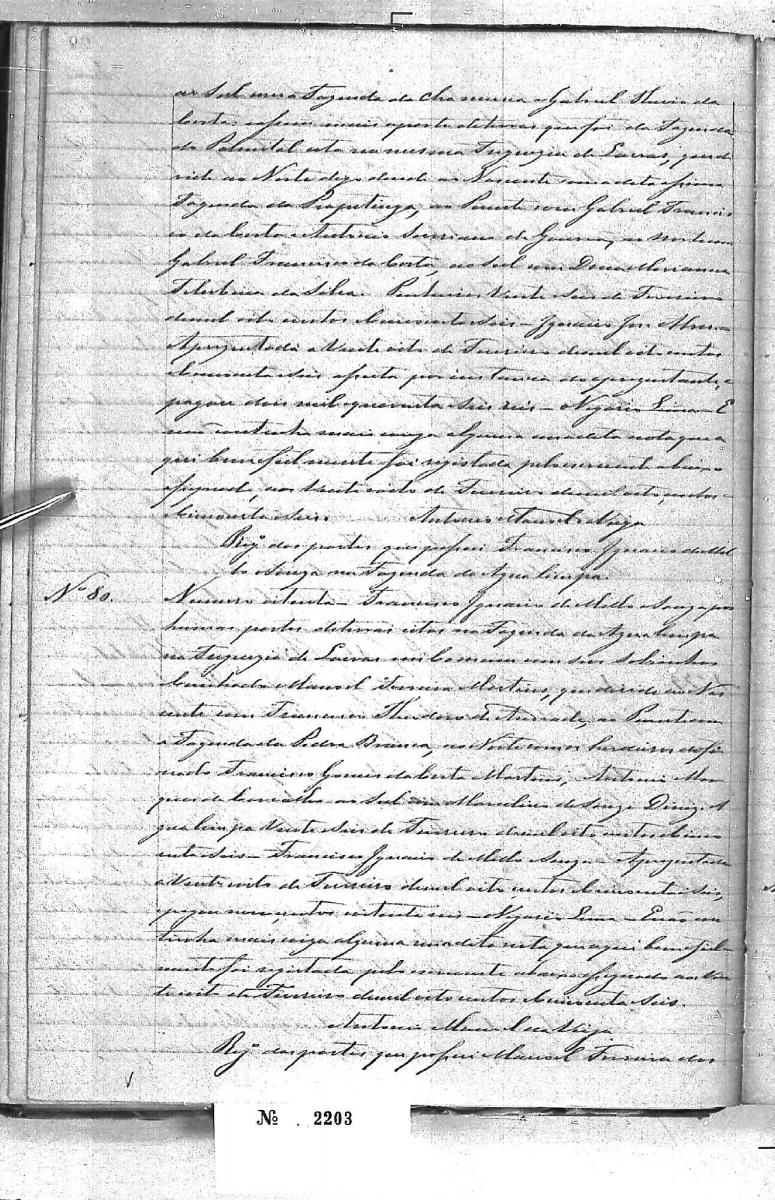 ao Sul com a Fazenda da Chamusca e Gabriel Flavio da
Costa: e possue mais a parte de terras que foi da Fazenda
do Palmital cita na mesma Freguezia de Lavras, que de
vide ao Norte digo devide ao Nascente com a dita
Fazenda da Prapetinga, ao Poente com Gabriel Francis
co da Costa e Antonio Severiano de Gouvea, ao Norte com
Gabriel Francisco da Costa, ao Sul com Dona Marianna
da Silva. Vinte Seis de Fevereiro
de mil oito centos e Cincoenta e Seis – Ignacio José
Aprezentada a Vinte oito de Fevereiro de mil oito centos
e Cincoenta e Seis por do aprezentante, e
pagou dois mil e quarenta e Seis reis – Vigario Lima – E
não continha mais couza alguma em a dita nota que a
qui bem e fielmente foi registada pelo escrevente abaixo
assignado, aos Vinte e oito de Fevereiro de mil e oito centos e
Cincoenta e Seis. Antonio Manoel da Veiga
Reg.º das partes que possui Francisco Ignacio de Mel
lo Souza na Fazenda da Agua limpa.
Nº 80. Numero oitenta – Francisco Ignacio de Mello Souza
humas partes de terras citas na Fazenda da Agua limpa
na Freguezia de Lavras em Comum com seus Sobrinhos
Cunhado Manoel Ferreira Martins, que divide ao Nas
cente com Francisco Theodoro de Andrade, ao Poente com
a Fazenda da Pedra Branca, ao Norte com os herdeiros do fi
nado Francisco Gomes da Costa Martins, Antonio Mar
ques de ao Sul com Marcelino de Souza Diniz. A
gua limpa Vinte e Seis de Fevereiro de mil oito centos e Cinco
enta e Seis – Francisco Ignacio de Mello Souza – Aprezentada
a Vinte e oito de Fevereiro de mil oito centos e Cincoenta e Seis,
pagou nove centos e oitenta reis – Vigario Lima – E não con
tinha mais couza alguma em a dita nota que aqui bem e fiel
mente foi registada pelo escrevente abaixo assignado aos Vin
te e oito de Fevereiro de mil oito centos e Cincoenta e Seis.
Antonio Manoel da Veiga
Reg.º das partes que possui Manoel Ferreira dos
Nº 2203